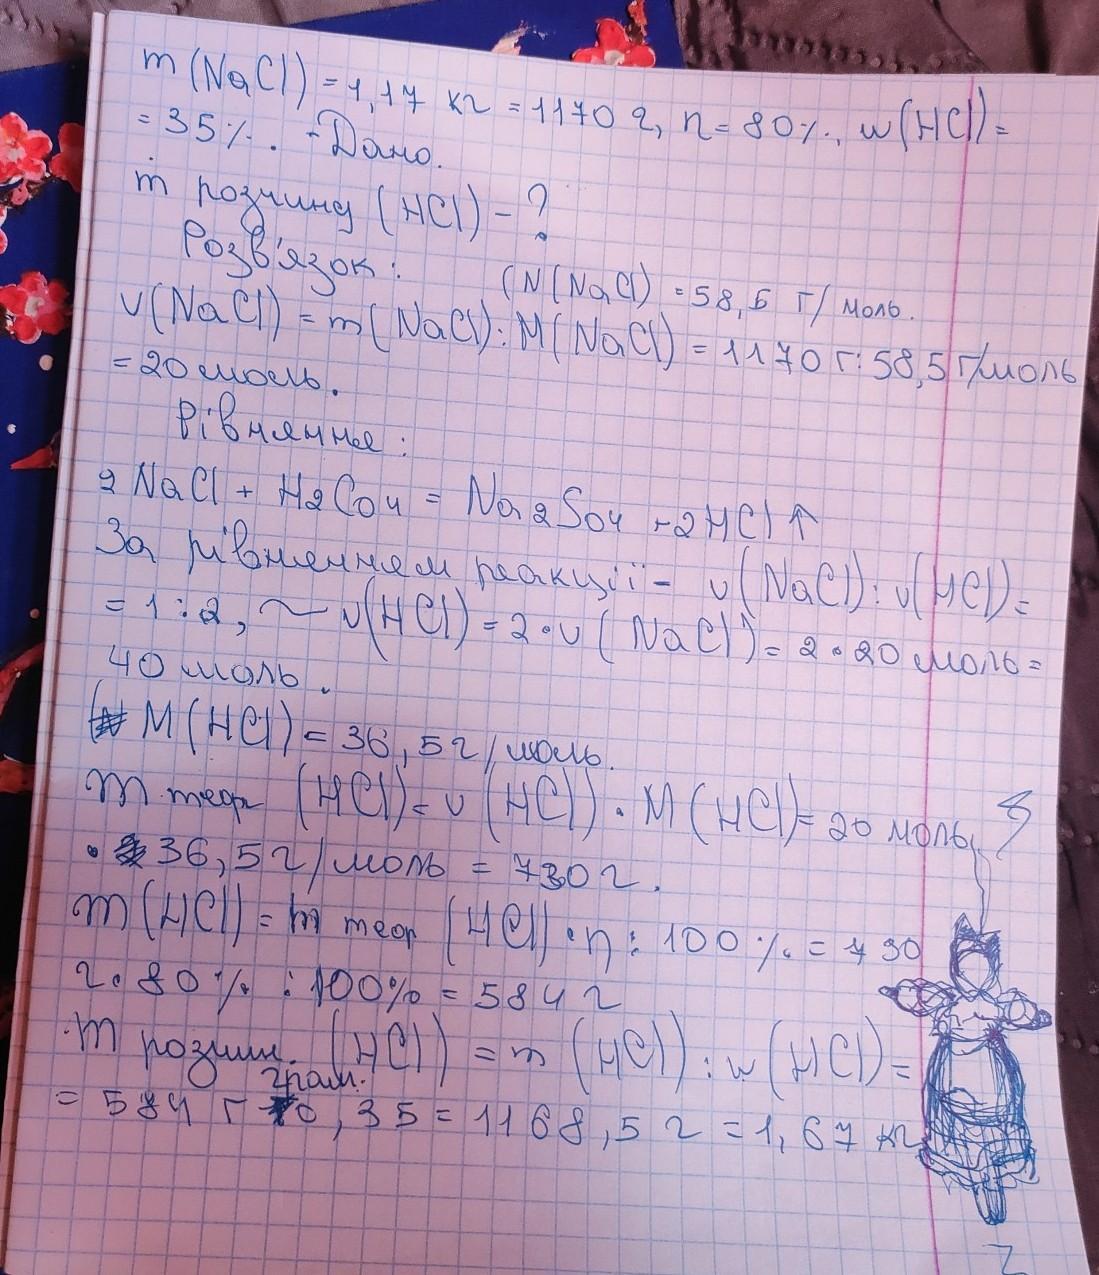 m(NaCl) = 1,17 кг = 1170 г, n = 80%, w(HCl) =
= 35%. - Дано.
m розчину (HCl) - ?
Розв'язок:
(N(NaCl) = 58,5 г/моль.
ν(NaCl) = m(NaCl) : M(NaCl) = 1170 г : 58,5 г/моль
= 20 моль.
Рівняння:
2 NaCl + H2Co4 = Na2So4 + 2HCl ↑
За рівнянням реакції - ν(NaCl) : ν(HCl) =
= 1 : 2, ~ ν(HCl) = 2 • ν(NaCl) = 2 • 20 моль =
40 моль.
M(HCl) = 36,5 г/моль.
m теор (HCl) = ν(HCl) • M(HCl) = 20 моль
• 36,5 г/моль = 730 г.
m(HCl) = m теор (HCl) • η : 100% = 730
г • 80% : 100% = 584 г
m розчин. (HCl) = m(HCl) : w(HCl) =
грам.
= 584 г 0,35 = 1168,5 г = 1,67 кг